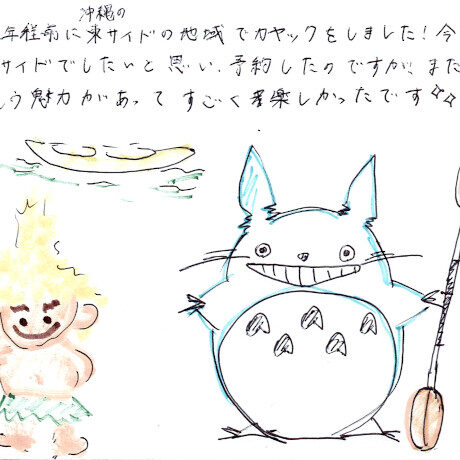 沖縄の
年程前に東サイドの地域でカヤックをしました!今
サイドでしたいと思い、予約したのですが、また
う魅力があってすごく楽しかったです☆☆